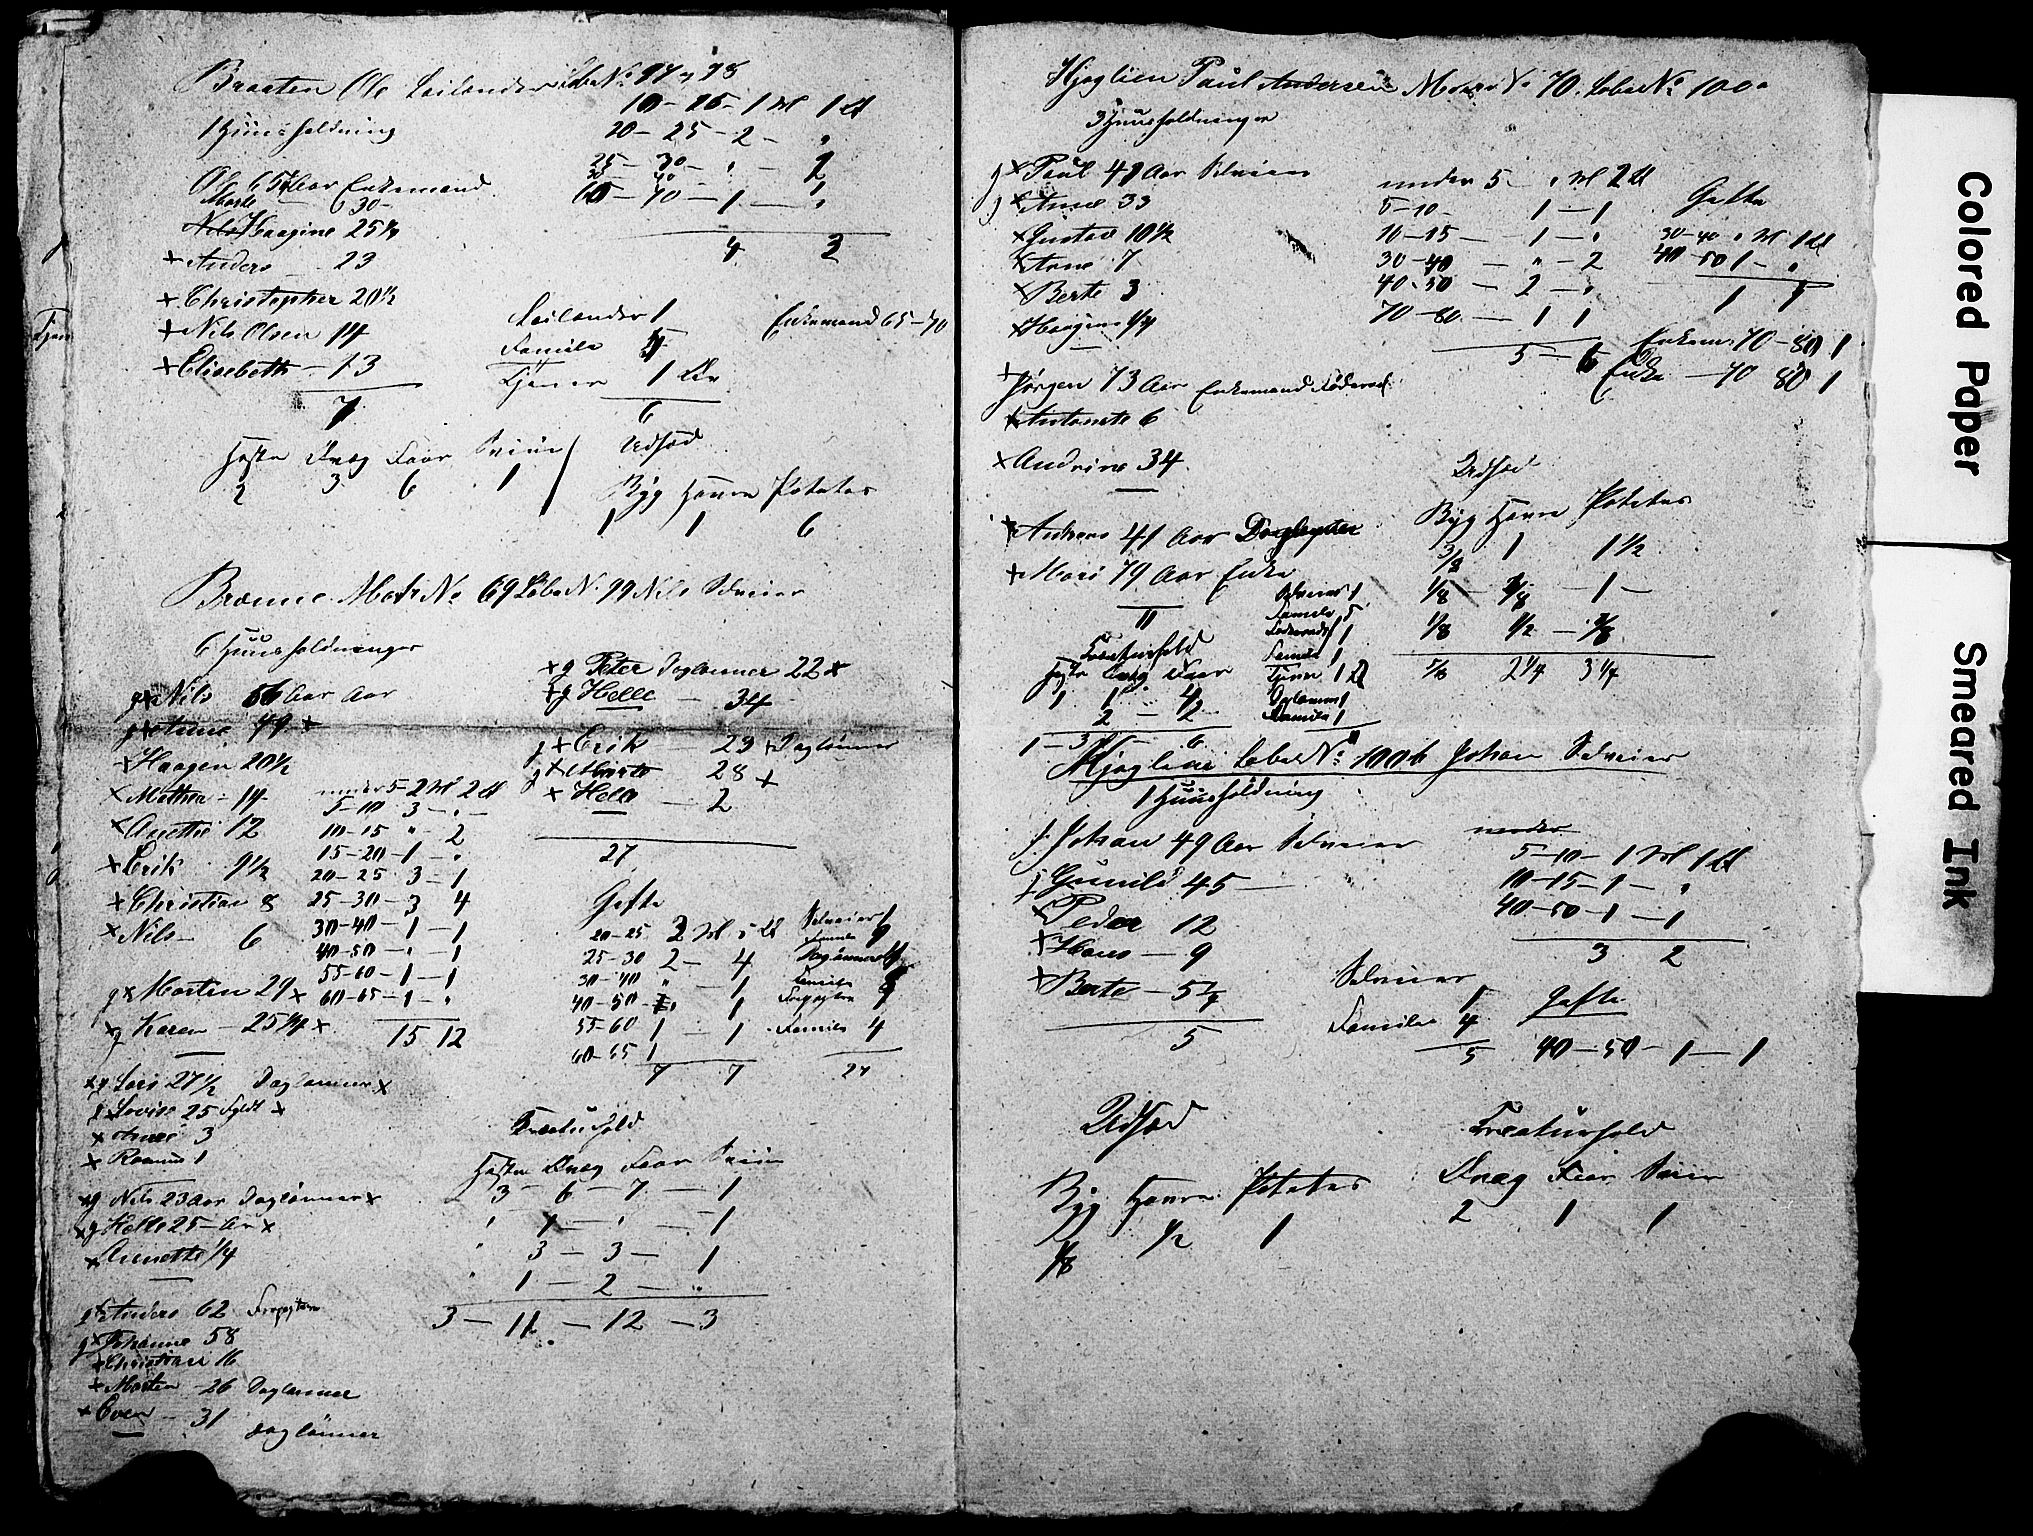 Braaten Ole Leilænder Løbe No 97 & 98
1 Huusholdning
10 – 15 – 1 M 1 Q
20 – 25 – 2 – "
25 – 30 – " – 2
60 – 70 – 1 – "
4 3
Ole 65 Aar Enkemand
Marte 30
Haagine 25½
x Anders 23
x Christopher 20½
x Nils Olsen 14
x Elisabeth – 13
7
Leilænder 1
Familie
Tjener 1 Qv
6
Enkemand 65–70
Heste Qvæg Faar Sviin
2 3 6 1
Udsæd
Byg Havre Potetes
1 1 6
Matr No 69 Løbe N. 99 Nils Selveier
6 Huusholdninger
gx Nils 56 Aar Aar
gx Anne 49 x
x Haagen 20½
x Mathea – 14
x Anethe 12
x Erik 9½
x Christian 8
x Nils – 6
gx Morten 29 x
xg Karen – 25¼ x
under 5 – 2 M 2 Q
5–10 3 – " –
10–15 " – 2
15–20 – 1 – "
20–25 3 – 1
25–30 – 3 4
30–40 – 1 – 1
40–50 – " – 1
55–60 – 1 – 1
60–65 – 1 – "
15 12
xg Lars 27½ Daglønner x
x Lovise 25 x
x Anne 3
x Rasmus 1
xg Nils 23 Aar Daglønner x
xg Helle 25 – Aar x
x Annette ¼
gx Anders 62
gx Johanne 58
x Christian 16
x Morten – 26 Daglønner
x Even – 31 Daglønner
xg Peter Daglønner 22 x
xg Helle – 34
gx Erik – 29 x Daglønner
gx Marte 28 x
x Helle – 2
27
Gifte
20–25 2 M " Q
25–30 2 – 4
30–40 " – 1
40–50 – " 1
55–60 1 – 1
60–65 1
7 7
Selveier 1
Familie
Daglønnere
Familie
Familie 4
27
Creaturhold
Heste Qvæg Faar Sviin
3 – 6 – 7 – 1
" 1 – " – 1
" 3 – 3 – 1
" 1 – 2 – "
3 – 11 – 12 – 3
Hjoglien Paul Andersen Matr No 70. Løbe No 100a
3 Huusholdninger
gx Paul 41 Aar Selveier
gx Anne 33
x Gustav 10½
x Arne 7
x Berte 3
x Jørgen ¼
under 5 – " M 2 Q
5–10 – 1 – 1
10–15 – 1 – "
30–40 – " – 2
40–50 – 2 – "
70–80 – 1 1
5 – 6
Gifte
30–40 " M 1 Q
40–50 1 – "
1 1
Enkem. 70–80 1
Enke – 70 80 1
x Jørgen 73 Aar Enkemand Føderaad
x Antonete 6
x Andrine 34
x Anders 41 Aar Daglønner
x Mari 79 Aar Enke
11
Udsæd
Byg Havre Potetes
3/8 1 1½
1/8 – – 1 –
1/8 ½ –
5/8 2¼ 3¼
Selveier 1
Familie 5
Føderaad 1
Familie 1
Tjener 1 Q
Daglønner 1
Familie 1
11
Creaturhold
Heste Qvæg Faar
1 1 4
2 – 2
1 – 3 – 6
Hjoglien Løbe No 100b Johan Selveier
1 Huusholdning
g. Johan 49 Aar Selveier
g Gunild 45 –
x Peder 12
x Hans – 9
x Berte – 5½
5
under
5–10 – 1 M 1 Q
10–15 – 1 – "
40–50 – 1 – 1
3 2
Selveier 1
Familie 4
5
Gifte
40–50 – 1 – 1
Udsæd
Byg Havre Potetes
1/8 ½ 1
Creaturhold
Qvæg Faar Sviin
2 1 1
Colored Paper
Smeared Ink